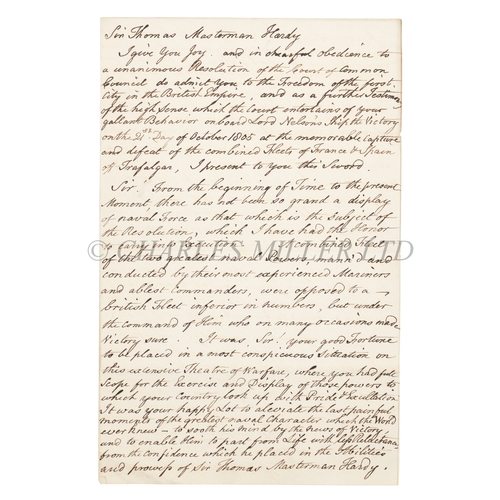 Sir Thomas Masterman Hardy
I give You Joy. and in chearful obedience to
a unanimous Resolution of the Court of Common
Council do admit you to the Freedom of the first
City in the British Empire, and as a further Testimony
of the high Sense which the Court entertains of your
gallant Behavior on board Lord Nelson's Ship the Victory
on the 21st Day of October 1805 at the memorable Capture
and defeat of the combined Fleets of France & Spain
off Trafalgar, I present to you this Sword.
Sir! From the beginning of Time to the present
Moment, there has not been so grand a display
of naval Force as that which is the subject of
the Resolution, which I have had the Honor
to carry into execution. The combined Fleets
© CHARLES MILLER LTD
of the two greatest naval Powers, mann'd and
conducted by their most experienced Mariners
and ablest commanders, were opposed to a
British Fleet inferior in numbers, but under
the command of Him who on many occasions made
Victory sure. It was, Sir! your good Fortune
to be placed in a most conspicuous Situation on
this extensive Theatre of Warfare, where you had full
Scope for the Exercise and Display of those powers to
which your Country look up with Pride & Exultation.
It was your happy Lot to aleviate the last painful
moments of the greatest naval Character which the World
ever knew – to sooth his mind by the News of Victory,
and to enable Him to part from Life with less
from the confidence which he placed in the Abilities
and prowess of Sir Thomas Masterman Hardy.